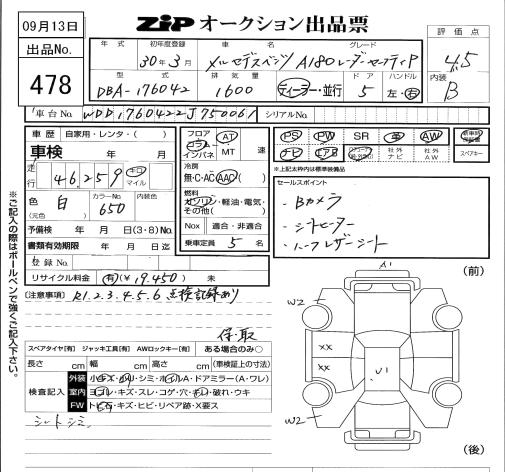 09月13日
出品No.
478
ZiP オークション出品票
評価点
4.5
内装
B
年式 初年度登録 車名 グレード
30年3月 メルセデスベンツ A180 レーダーセーフティP
型式 排気量 ドア ハンドル
DBA-176042 1600 ディーラー・並行 5 左・右
車台No. WDD1760422J750061 シリアルNo.
車歴 自家用・レンタ・( )
車検 年 月
走行 46,259 キロ マイル
色 白 (元色) カラーNo. 650 内装色
予備検 年 月 日(3・8)No.
書類有効期限 年 月 日迄
登録No.
リサイクル料金 有(¥19,450) 未
フロア コラム インパネ AT MT 速
冷房
無・C・AC・AAC( )
燃料
ガソリン・軽油・電気・その他( )
Nox 適合・非適合
乗車定員 5 名
PS PW SR 革 AW 新車時保証書
ナビ エアB 社外ナビ 社外AW スペアキー
※上記太枠内は標準装備品
セールスポイント
・Bカメラ
・シートヒーター
・ハーフレザーシート
[注意事項] R1.2.3.4.5.6 点検記録あり
保・取
スペアタイヤ[有] ジャッキ工具[有] AWロックキー[有] ある場合のみ○
長さ cm 幅 cm 高さ cm (車検証上の寸法)
検査記入
外装 小キズ・凹・シミ・ホイルA・ドアミラー(A・ワレ)
室内 ヨゴレ・キズ・スレ・コゲ・穴・破れ・ウキ
FW トビ石・キズ・ヒビ・リペア跡・X要ス
シートシミ
※ご記入の際はボールペンで強くご記入下さい。
A1
(前)
W2
XX XX
U1
W2
(後)